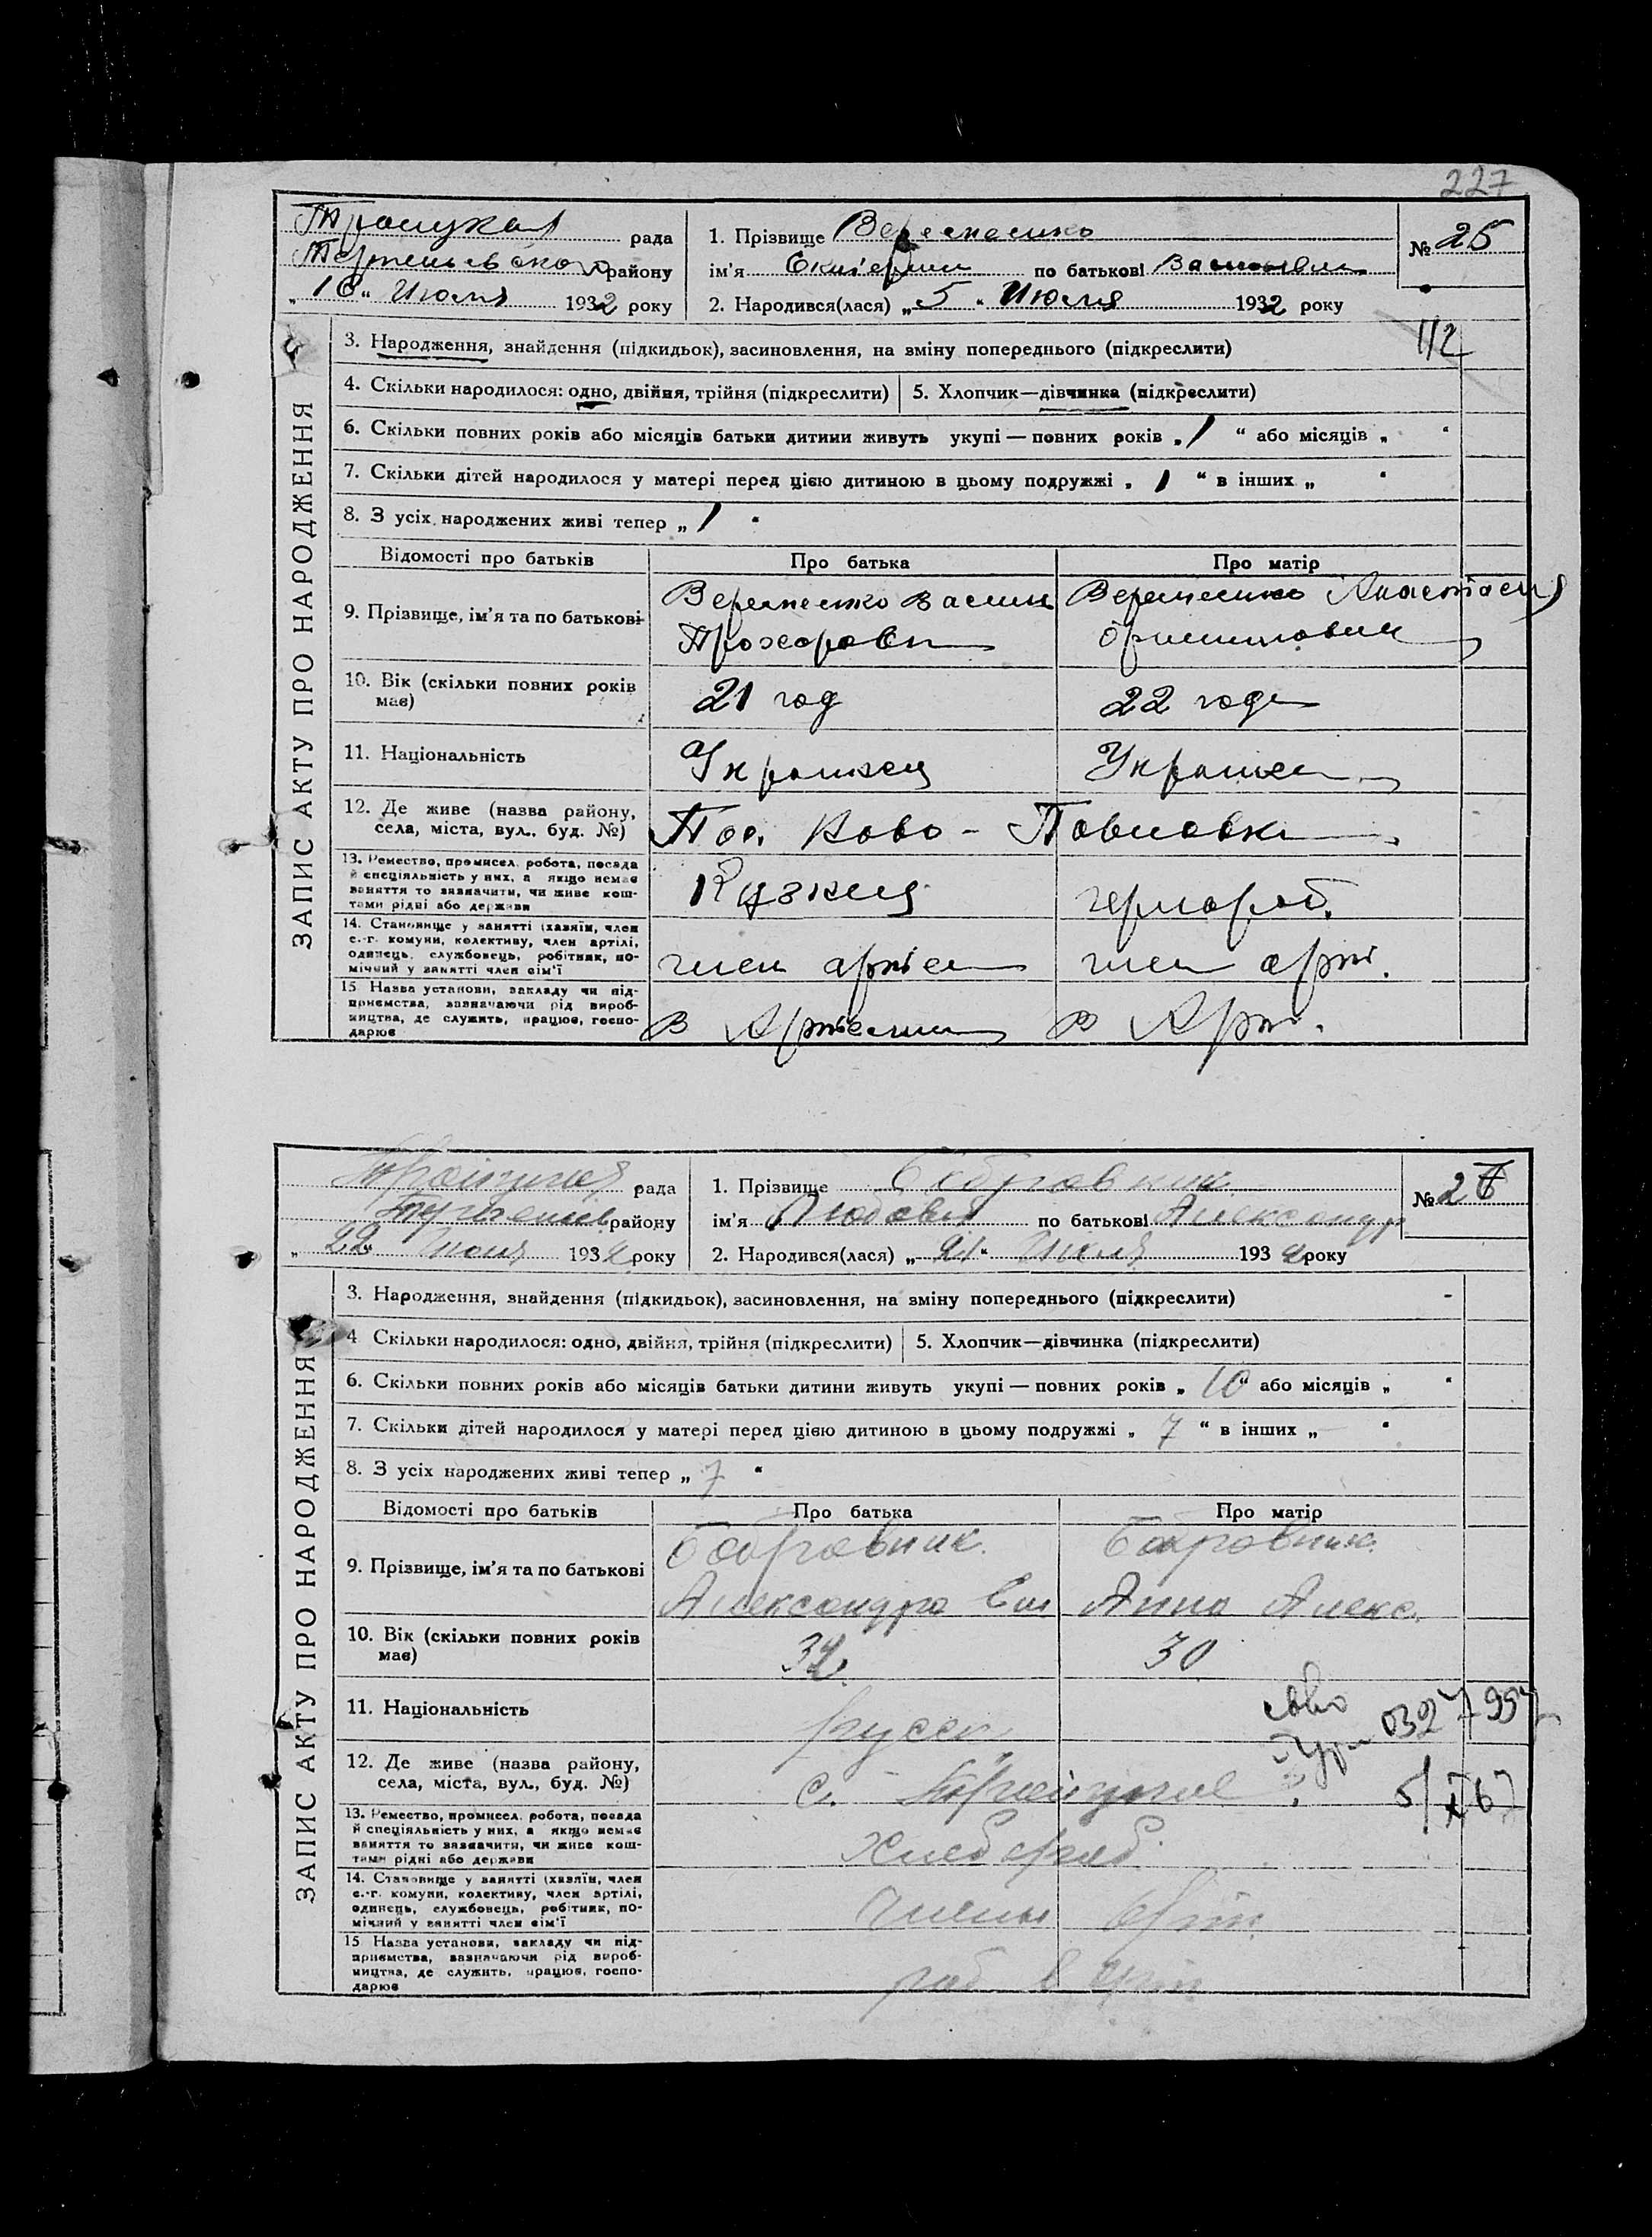 227
Троицкая рада
району
"16" Июля 1932 року
1. Прізвище
ім'я по батькові
2. Народився(лася) „5" Июля 1932 року
№ 25
ЗАПИС АКТУ ПРО НАРОДЖЕННЯ
3. Народження, знайдення (підкидьок), засиновлення, на зміну попереднього (підкреслити)
112
4. Скільки народилося: одно, двійня, трійня (підкреслити) 5. Хлопчик—дівчинка (підкреслити)
6. Скільки повних років або місяців батьки дитини живуть укупі — повних років „1" або місяців „ "
7. Скільки дітей народилося у матері перед цією дитиною в цьому подружжі „1" в інших „ "
8. З усіх народжених живі тепер „1"
Відомості про батьків Про батька Про матір
9. Прізвище, ім'я та по батькові
10. Вік (скільки повних років має) 21 год 22 года
11. Національність
12. Де живе (назва району, села, міста, вул., буд. №) Пос. Ново-Павловка
13. Ремество, промисел, робота, посада й спеціяльність у них, а якщо немає заняття то зазначити, чи живе коштами рідні або держави Кузнец чернораб.
14. Становище у занятті (хазяїн, член с.-г. комуни, колективу, член артілі, одинець, службовець, робітник, помічний у занятті член сім'ї член артели член арт.
15 Назва установи, закладу чи підприємства, зазначаючи рід виробництва, де служить, працює, господарює в Артели в Арт.
Троицкая рада
району
"22" Июля 1932 року
1. Прізвище Бобровник
ім'я Любовь по батькові Александр
2. Народився(лася) „21" Июля 1932 року
№ 26
ЗАПИС АКТУ ПРО НАРОДЖЕННЯ
3. Народження, знайдення (підкидьок), засиновлення, на зміну попереднього (підкреслити)
4 Скільки народилося: одно, двійня, трійня (підкреслити) 5. Хлопчик—дівчинка (підкреслити)
6. Скільки повних років або місяців батьки дитини живуть укупі — повних років „10" або місяців „ "
7. Скільки дітей народилося у матері перед цією дитиною в цьому подружжі „ 7 " в інших „ "
8. З усіх народжених живі тепер „ 7 "
Відомості про батьків Про батька Про матір
9. Прізвище, ім'я та по батькові Бобровник. Бобровник.
Александра Анна Алекс.
10. Вік (скільки повних років має) 32 30
11. Національність русск.
12. Де живе (назва району, села, міста, вул., буд. №) с. Троицкое
13. Ремество, промисел, робота, посада й спеціяльність у них, а якщо немає заняття то зазначити, чи живе коштами рідні або держави Хлебороб
14. Становище у занятті (хазяїн, член с.-г. комуни, колективу, член артілі, одинець, службовець, робітник, помічний у занятті член сім'ї Члены арт.
15 Назва установи, закладу чи підприємства, зазначаючи рід виробництва, де служить, працює, господарює раб в арт